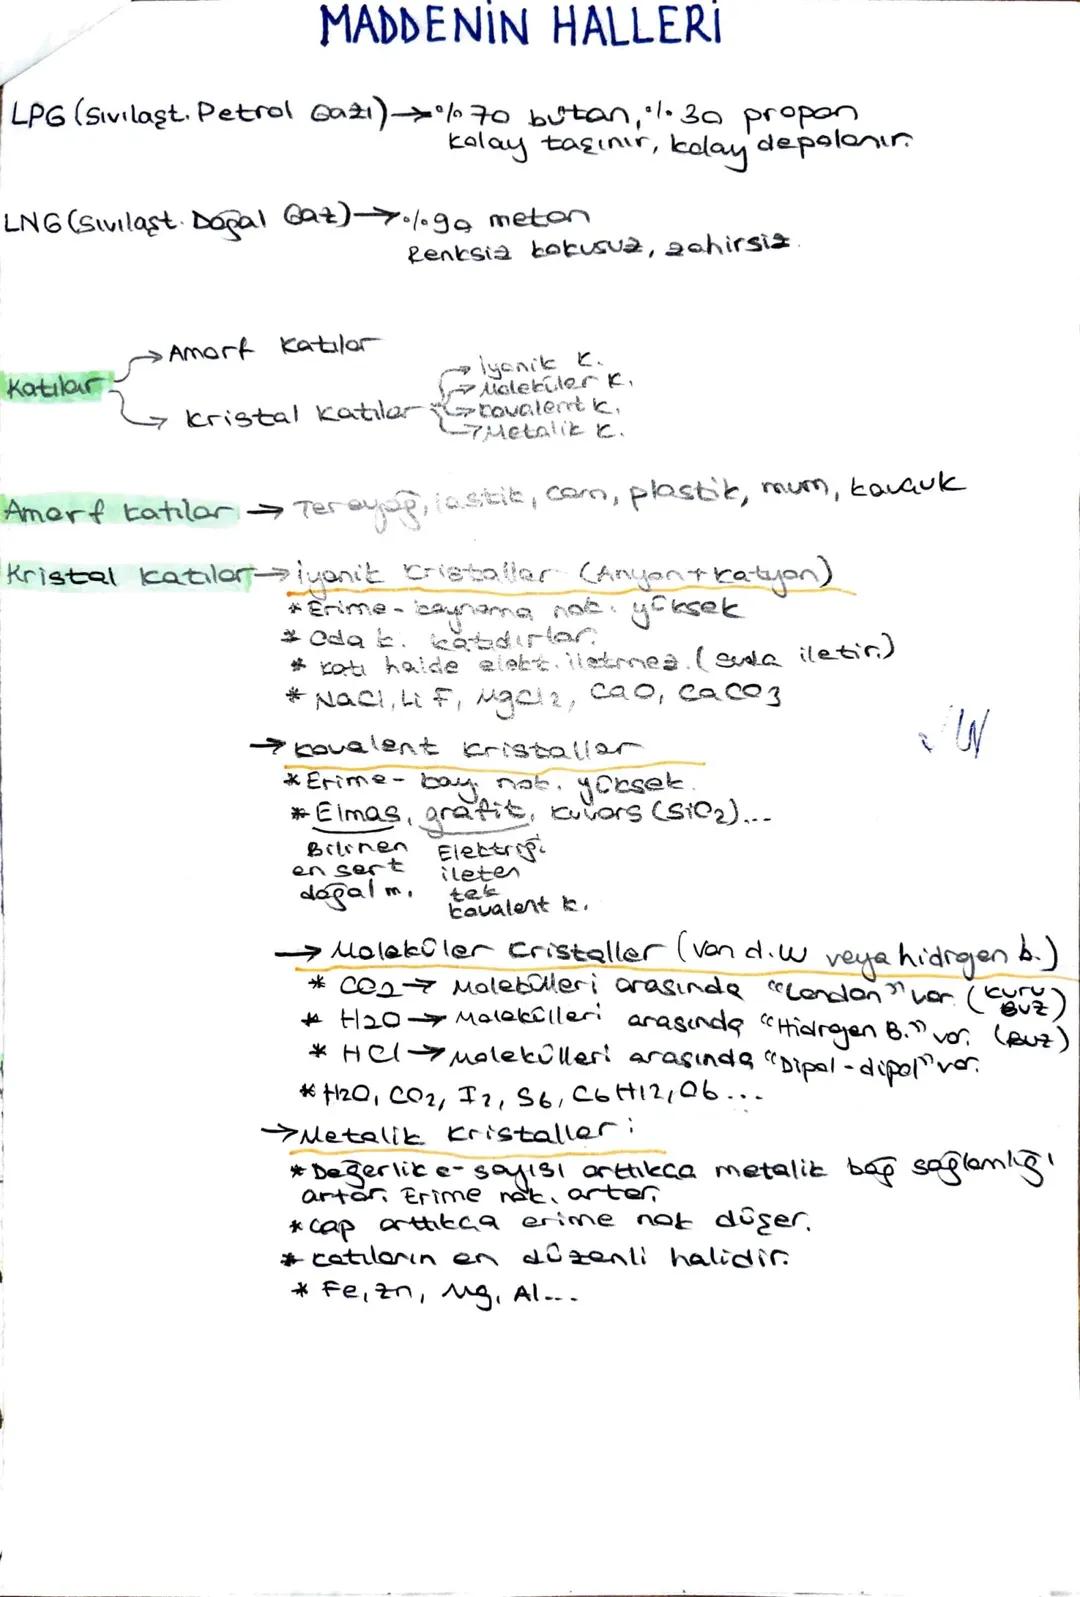 MADDENİN HALLERİ
LPG (Sıvılaşt. Petrol Gazı) → %70 bütan, %30 propan
kolay taşınır, kolay depolanır.
LNG (Sıvılaşt. Doğal Gaz) → %90 metan
Renksiz kokusuz, zehirsiz.
→ Amorf Katılar
Katılar
→ Kristal Katılar
→ İyonik K.
→ Moleküler K.
→ Kovalent K.
→ Metalik K.
Amorf katılar → Tereyağ, lastik, cam, plastik, mum, kauçuk
Kristal Katılar → İyonik Kristaller (Anyon + Katyon)
* Erime - kaynama nok. yüksek
* Oda k. katıdırlar.
* Katı halde elekt. iletmez. (Suda iletir.)
* NaCl, LiF, MgCl2, CaO, CaCO3
→ Kovalent Kristaller
* Erime - kay. nok. yüksek.
* Elmas, grafit, Kuvars (SiO2)...
Bilinen en sert doğal m.
Elektriği ileten tek kovalent k.
→ Moleküler Kristaller (Van d.W veya hidrojen b.)
* CO2 → Molekülleri arasında "London" var. (Kuru Buz)
* H2O → Molekülleri arasında "Hidrojen B." var. (Buz)
* HCl → Molekülleri arasında "Dipol - dipol" var.
* H2O, CO2, I2, S6, C6H12O6...
→ Metalik Kristaller :
* Değerlik e- sayısı arttıkca metalik bağ sağlamlığı
artar. Erime nok. artar.
* Çap arttıkça erime nok düşer.
* Katıların en düzenli halidir.
* Fe, Zn, Mg, Al...